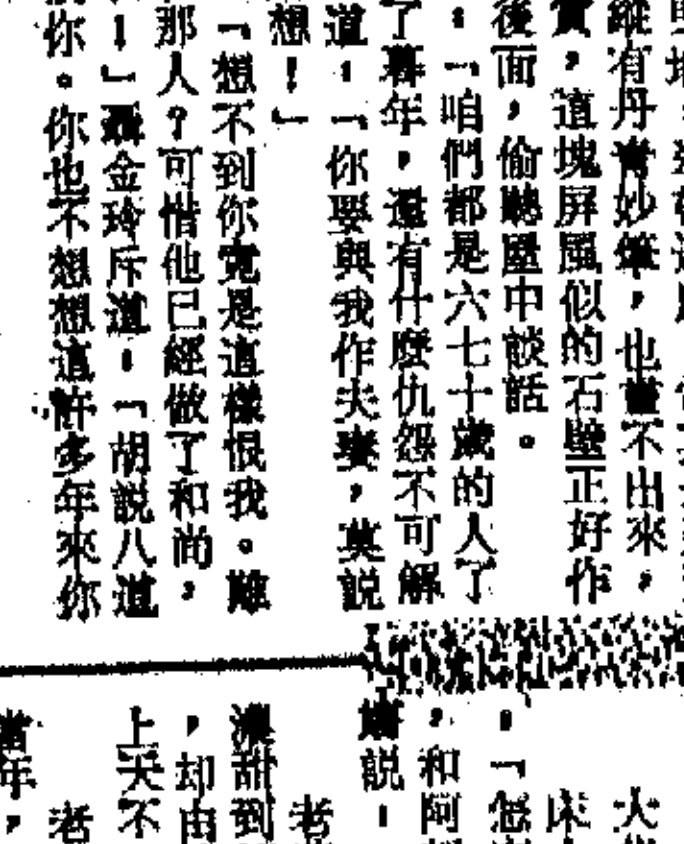 縱有丹青妙筆，也畫不出來，
實，這塊屏風似的石壁正好作
後面，偷聽壁中談話。
：「咱們都是六七十歲的人了
了暮年，還有什麼仇怨不可解
道：「你要與我作夫妻，莫説
想！」
「想不到你竟是這樣恨我。難
那人？可惜他已經做了和尚，
！」聶金玲斥道：「胡説八道
你。你也不想想這許多年來你
大
床
：「怎
，和阿
説：
老
濃甜到
，却由
上天不
老
當年，